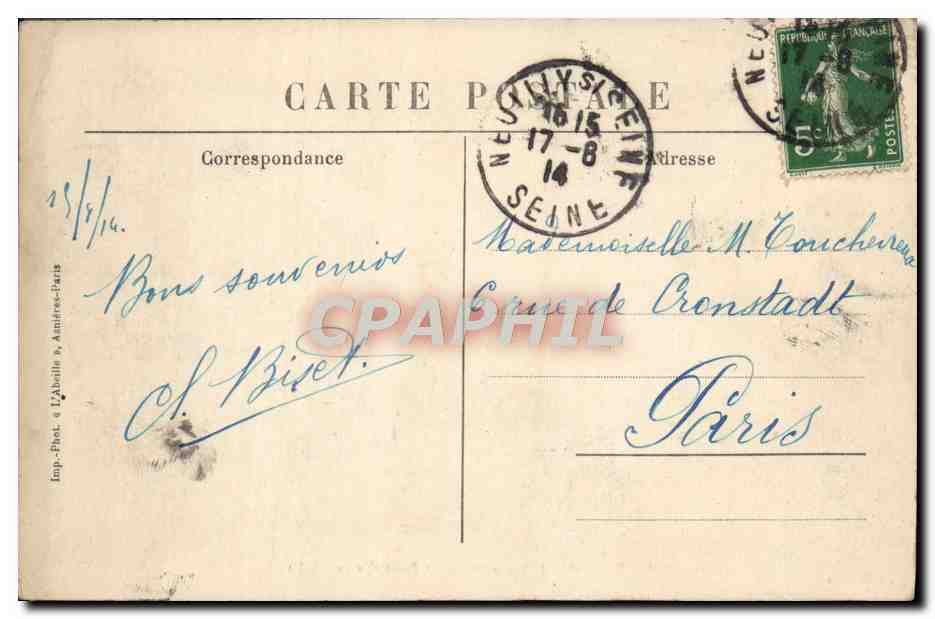 CARTE POSTALE
Correspondance
Adresse
NEUILLY S/SEINE
16 15
17 - 8
14
SEINE
NEU
17 - 8
14
REPUBLIQUE FRANÇAISE
5c
POSTES
Bons souvenirs
Ch. Biset.
Mademoiselle M. Toucheireux
6 rue de Cronstadt
Paris
Imp.-Phot. « L'Abeille », Asnières-Paris
CPAPHIL